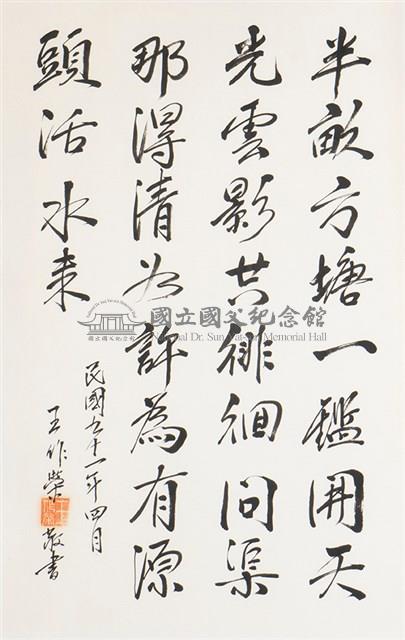 半畝方塘一鑑開天
光雲影共徘徊問渠
那得清如許為有源
頭活水來
民國九十一年四月
王作榮敬書
國立國父紀念館
National Dr. Sun Yat-sen Memorial Hall
國立國父紀念館